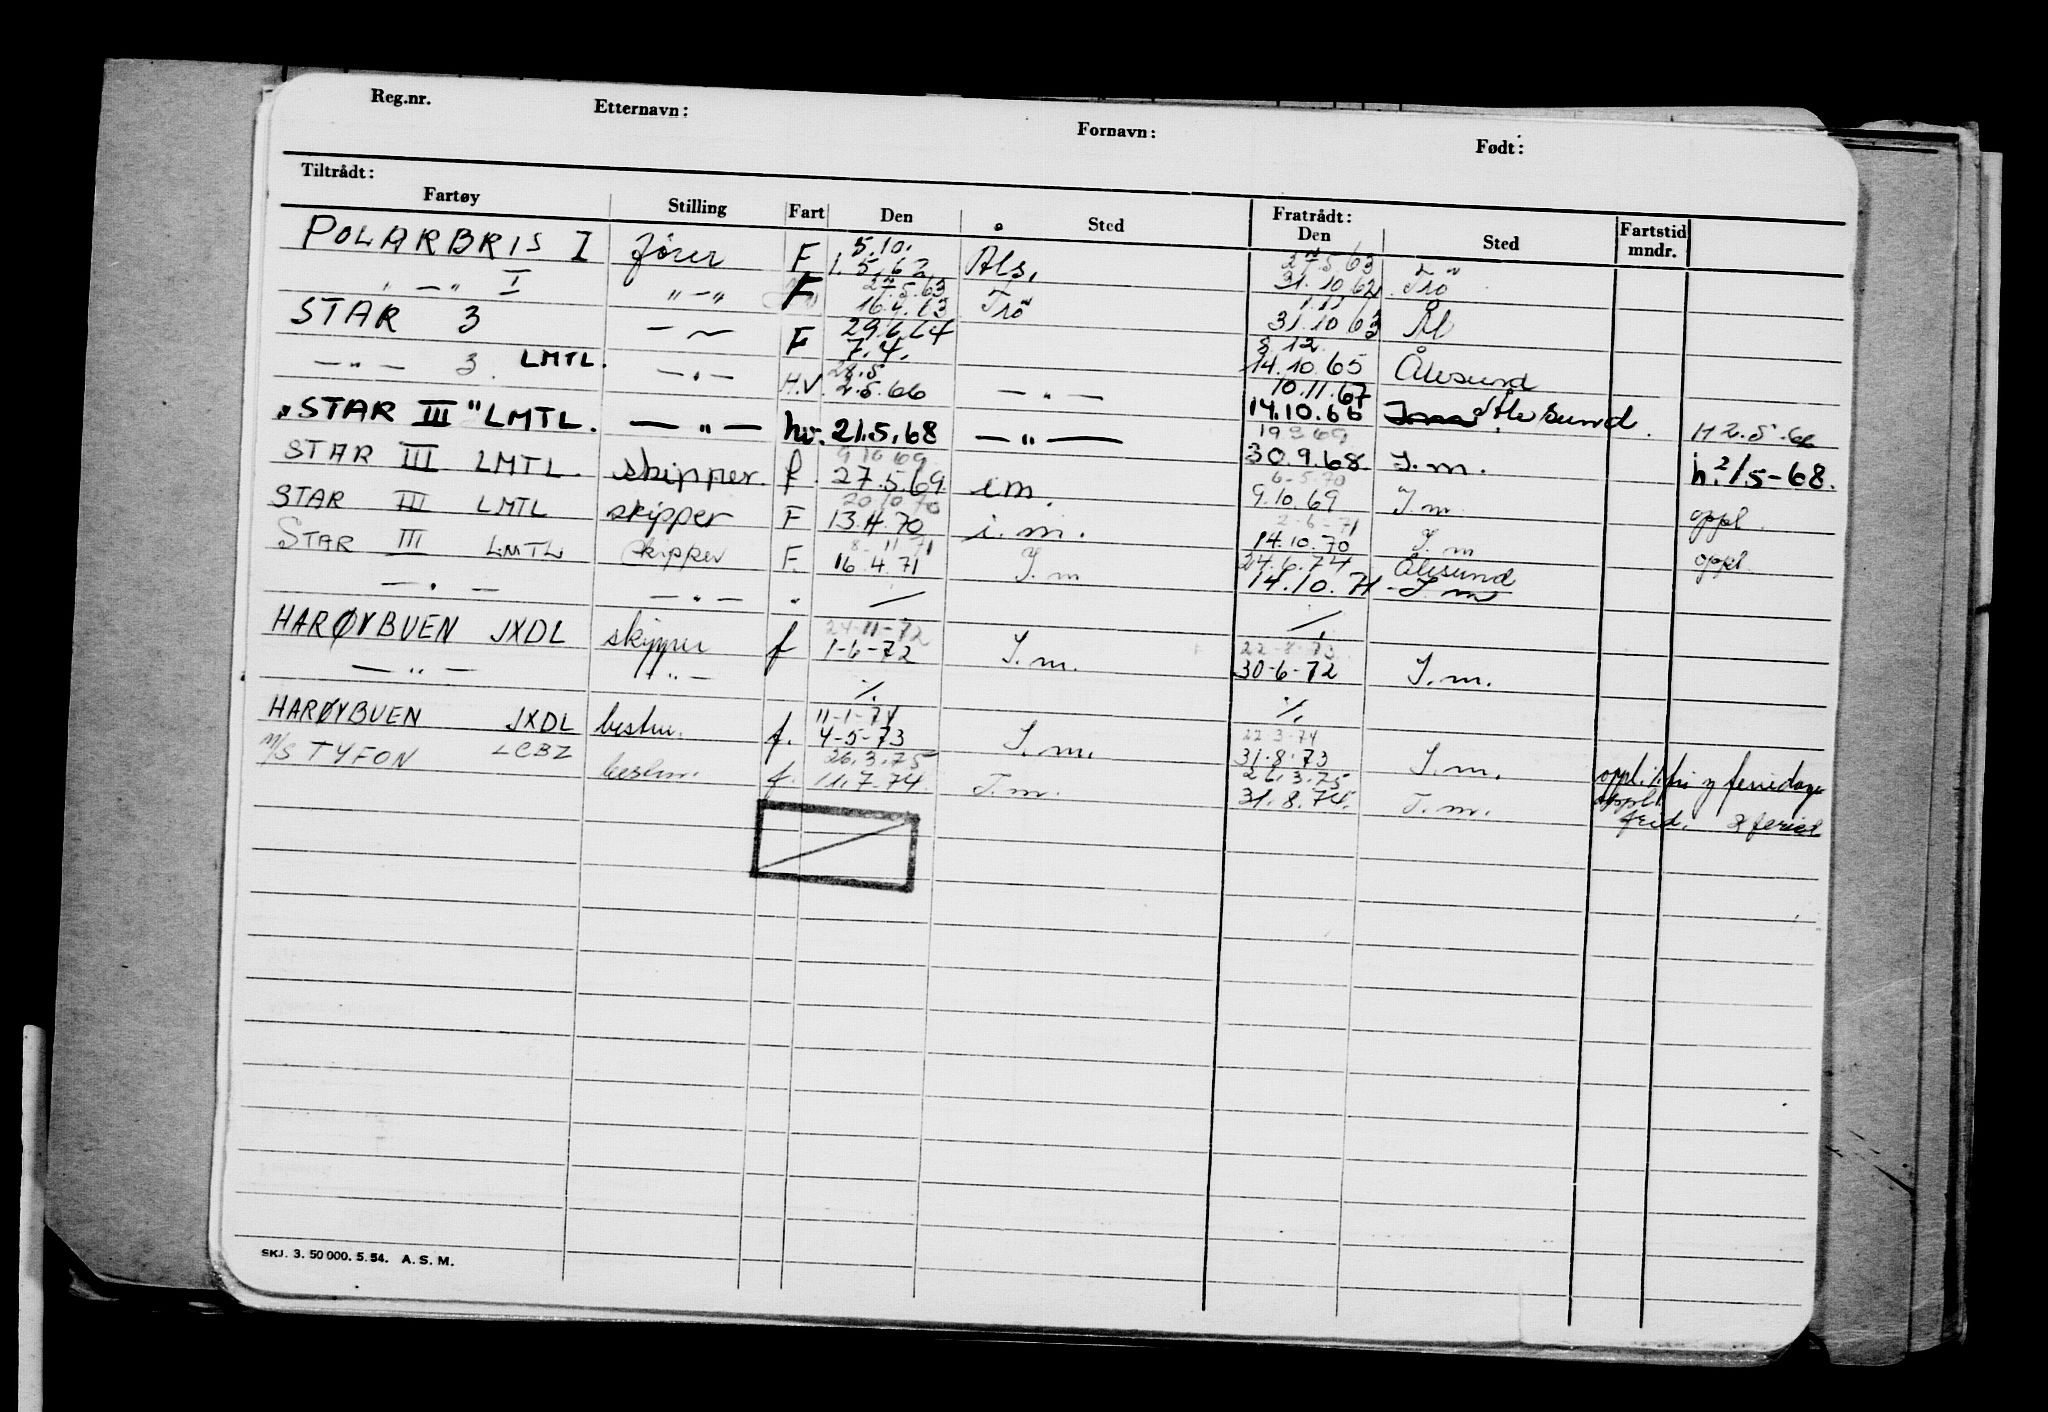 Reg.nr. Etternavn: Fornavn: Født:
Tiltrådt: Fratrådt:
Fartøy Stilling Fart Den Sted Den Sted Fartstid mndr.
POLARBRIS I fører F 5.10. 1.5.62 Als. 27.5.63 31.10.62 Trö
" — " I " — " F 27.5.63 16.4.63 Trö 1.11 31.10 63 Ål
STAR 3 — " — F 29.6.64 7.4. 8 12. 14.10.65 Ålesund
— " — 3. LMTL. — " — H.V. 28.5 2.5.66 — " — 10.11.67 14.10.66 Ålesund. H 2.5.66
"STAR III" LMTL. — " — hv. 21.5.68 — " — 19 3 69 30.9.68 I.m. h. 21/5-68.
STAR III LMTL. skipper. f. 9 10 69 27.5.69 i.m. 6-5.70 9.10.69 I.m. oppl.
STAR III LMTL skipper F 20 10 70 13.4.70 i.m. 2-6-71 14.10.70 I.m oppl.
STAR III LMTL skipper F. 8-11-71 16.4.71 I.m 24.6.74 14.10.71 Ålesund I m
— " — — " — " / /.
HARØYBUEN JXDL skipper f 24-11-72 1-6-72 I.m. 22-8-73 30-6-72 I.m.
— " — " — ./. ./.
HARØYBUEN JXDL bestm. f. 11-1-74 4-5-73 I.m. 22 3-74 31.8.73 I.m. oppl. i fri og feriedage
M/S TYFON LCBZ bestm. f. 26.3.75 11.7.74. I.m. 26.3.75 31.8.74. I.m. oppl. frid. & feried
SKJ. 3. 50 000. 5. 54. A. S. M.